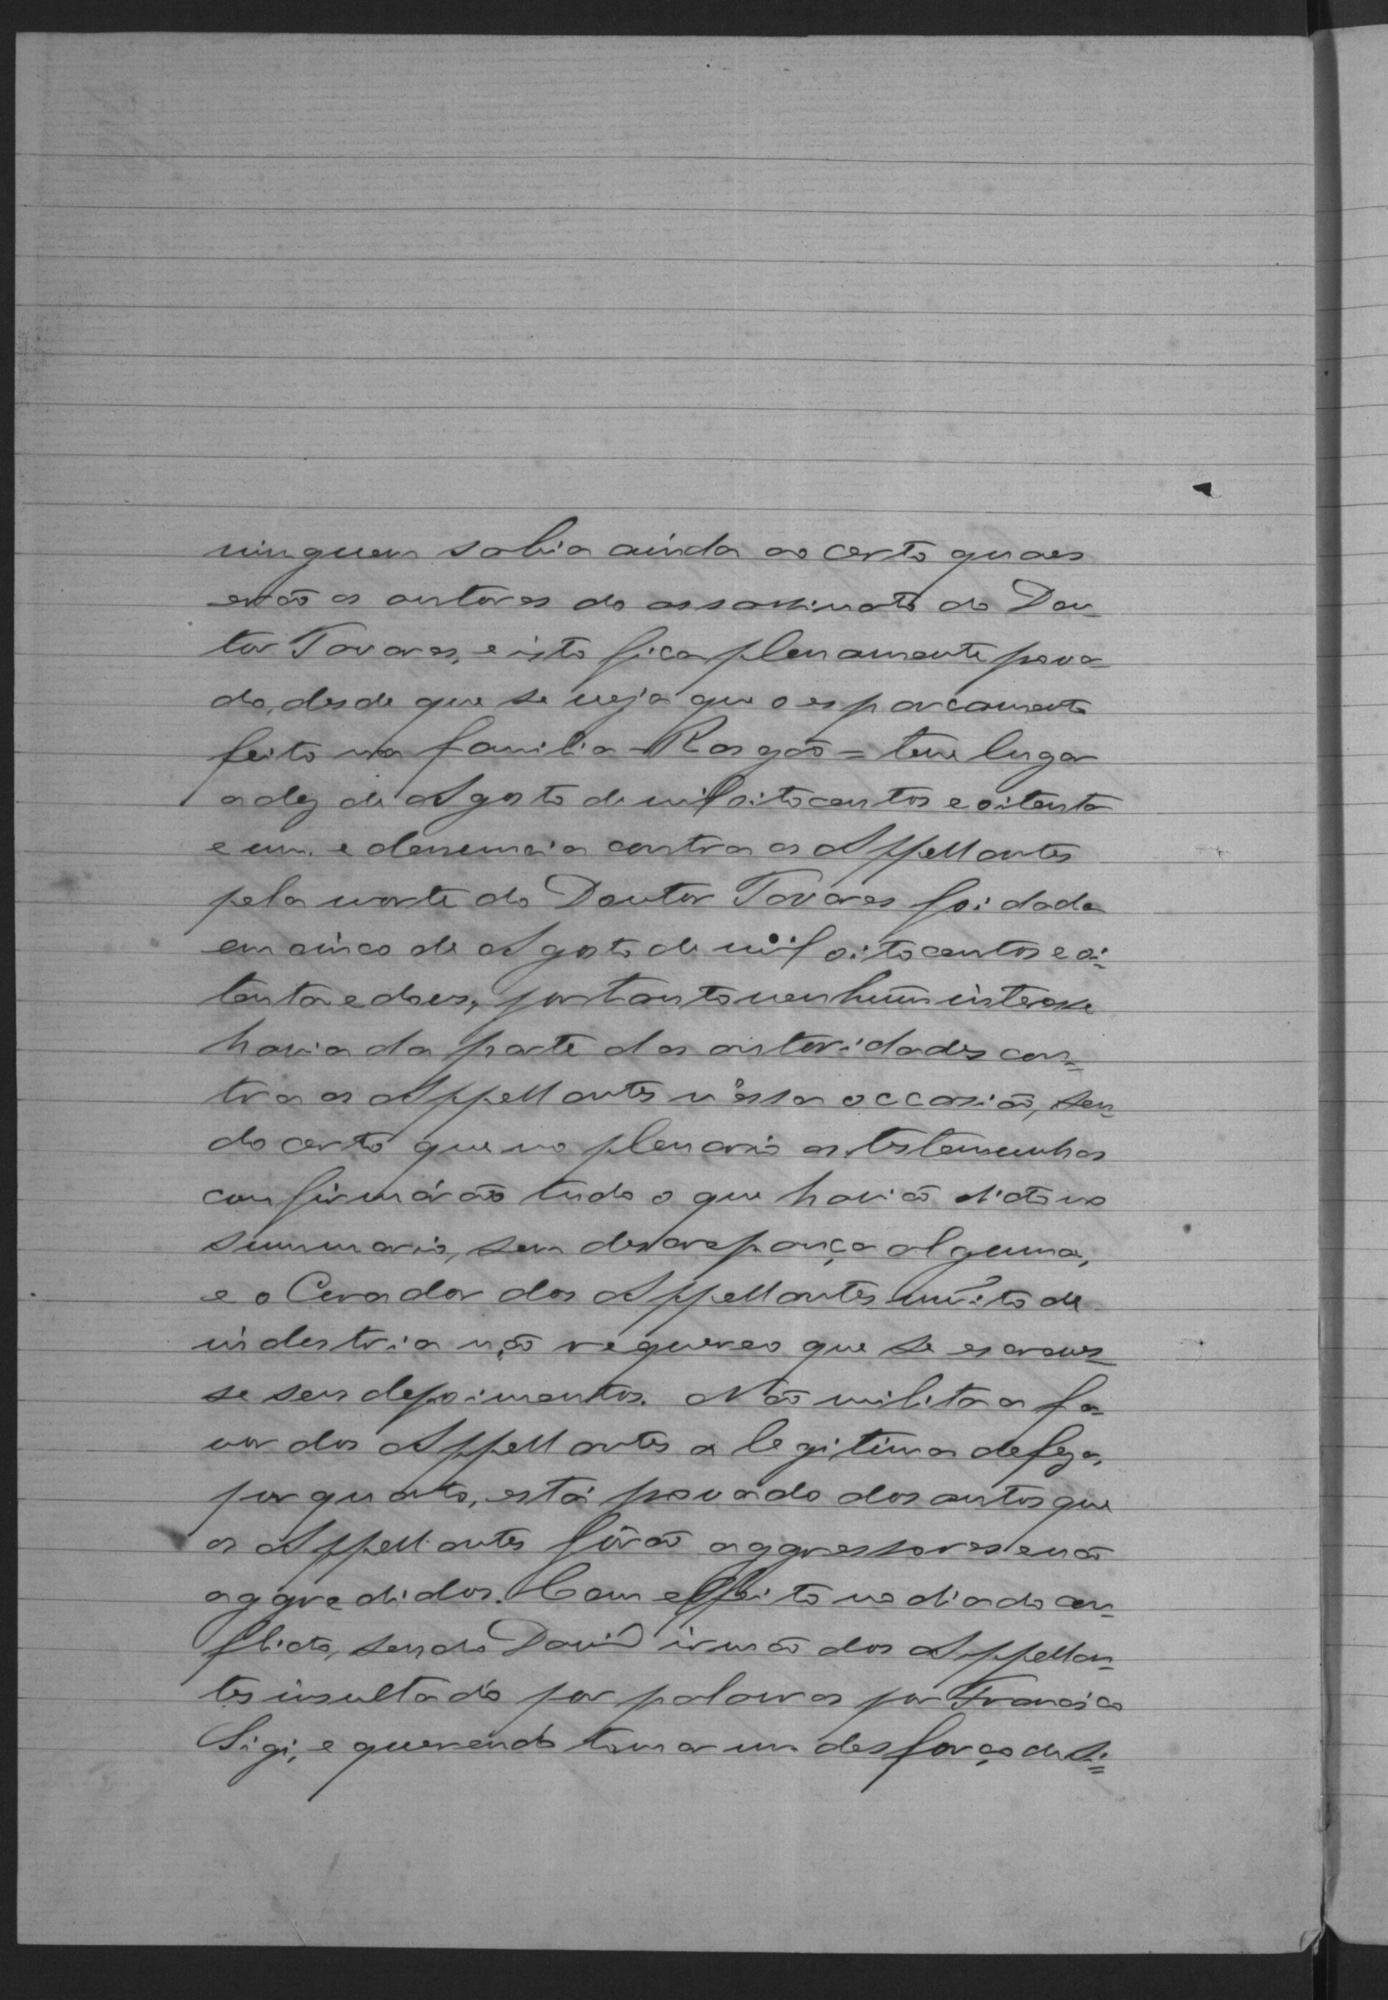 ninguem sabia ainda ao certo quaes
erão os autores do assassinato do Dou-
tor Tavares, e isto fica plenamente prova-
do, desde que se veja que o espancamento
feito na familia = Rasgão = teve lugar
a dez de Agosto de mil oitocentos e oitenta
e um. e denuncia contra os Appellantes
pela morte do Doutor Tavares foi dada
em cinco de Agosto de mil oitocentos e oi-
tenta e dous, portanto nenhum interesse
havia da parte das autoridades con-
tra os Appellantes n'essa occasião, sen-
do certo que no plenario as testemunhas
confirmárão tudo o que havião dicto no
summario, sem descrepança alguma,
e o Curador dos Appellantes muito de
industria não requereo que se escreves-
se seus depoimentos. Não milita a fa-
vor dos Appellantes a legitima defeza,
por quanto, está provado dos autos que
os Appellantes fôrão aggressores e não
aggredidos. Com effeito no dia do con-
flicto, sendo David irmão dos Appellan-
tes insultado por palavras por Francisco
Sigi, e querendo tomar um desforço de si=